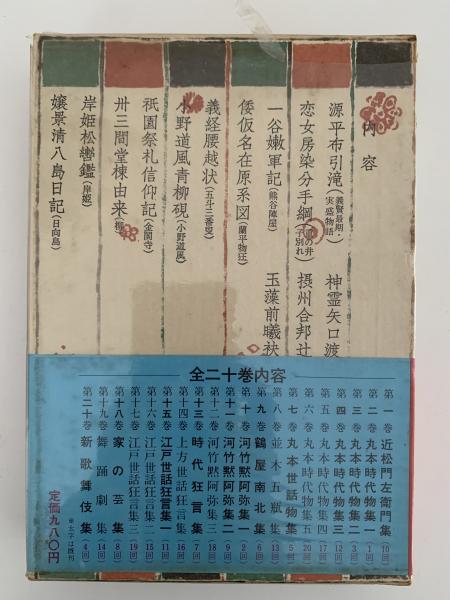 内容
源平布引滝（義賢最期・実盛物語）
神霊矢口渡
恋女房染分手綱
摂州合邦辻
一谷嫩軍記（熊谷陣屋）
玉藻前曦袂
倭仮名在原系図（蘭平物狂）
義経腰越状（五斗三番叟）
小野道風青柳硯（小野道風）
祇園祭礼信仰記（金閣寺）
卅三間堂棟由来
岸姫松轡鑑（岸姫）
嬢景清八島日記（日向島）
全二十巻内容
第一巻 近松門左衛門集（10回）
第二巻 丸本時代物集一（1回）
第三巻 丸本時代物集二（3回）
第四巻 丸本時代物集三（12回）
第五巻 丸本時代物集四（17回）
第六巻 丸本時代物集五（20回）
第七巻 丸本世話物集（5回）
第八巻 並木五瓶集（13回）
第九巻 鶴屋南北集（6回）
第十巻 河竹黙阿弥集一（2回）
第十一巻 河竹黙阿弥集二（9回）
第十二巻 河竹黙阿弥集三（18回）
第十三巻 時代狂言集（7回）
第十四巻 上方世話狂言集（16回）
第十五巻 江戸世話狂言集一（11回）
第十六巻 江戸世話狂言集二（15回）
第十七巻 江戸世話狂言集三（19回）
第十八巻 家の芸集（8回）
第十九巻 舞踊劇集（14回）
第二十巻 新歌舞伎集（4回）
★太字は既刊
定価九八〇円